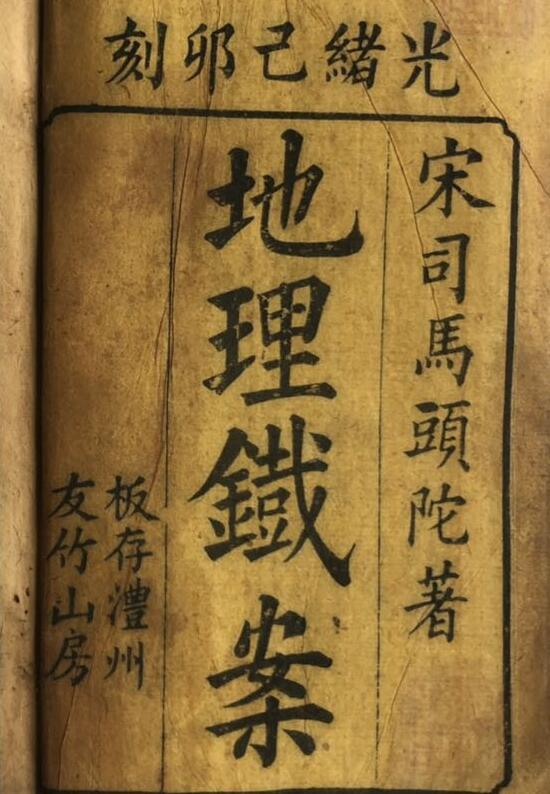 光緒己卯刻
宋司馬頭陀著
地理鐵案
板存澧州
友竹山房